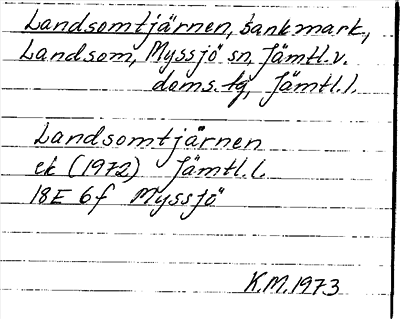 Landsomtjärnen, sankmark,
Landsom, Myssjö sn, Jämtl. v.
doms. tg, Jämtl. l.
Landsomtjärnen
ek (1972) Jämtl. l.
18E 6f Myssjö
K.M. 1973